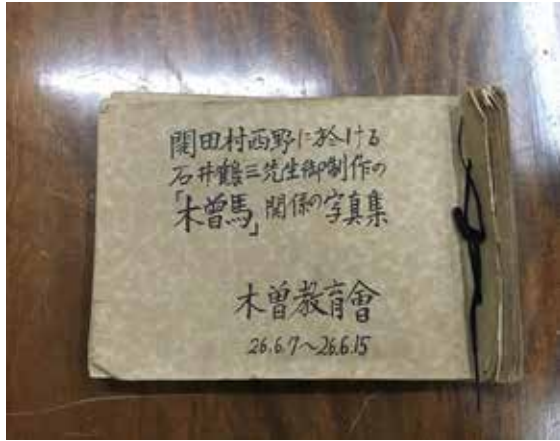 開田村西野に於ける
石井鶴三先生御制作の
「木曽馬」関係の写真集
木曽教育會
26.6.7~26.6.15